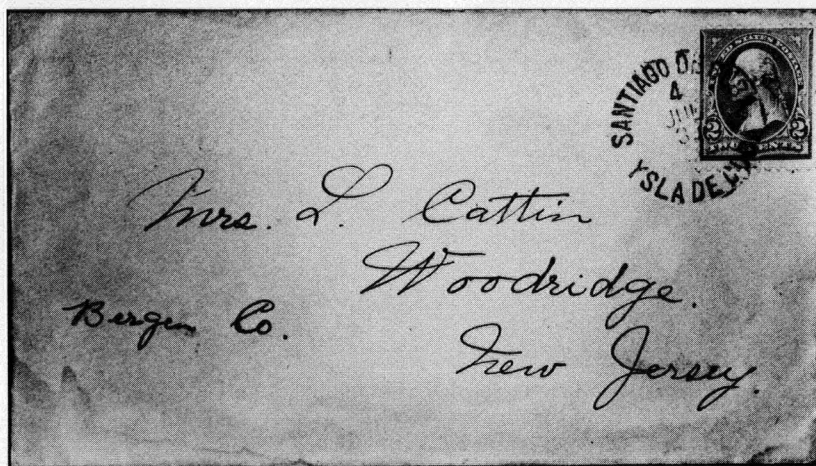 SANTIAGO DE
4
YSLA DE CUBA
Mrs. L. Cattin
Woodridge.
Bergen Co.
New Jersey.